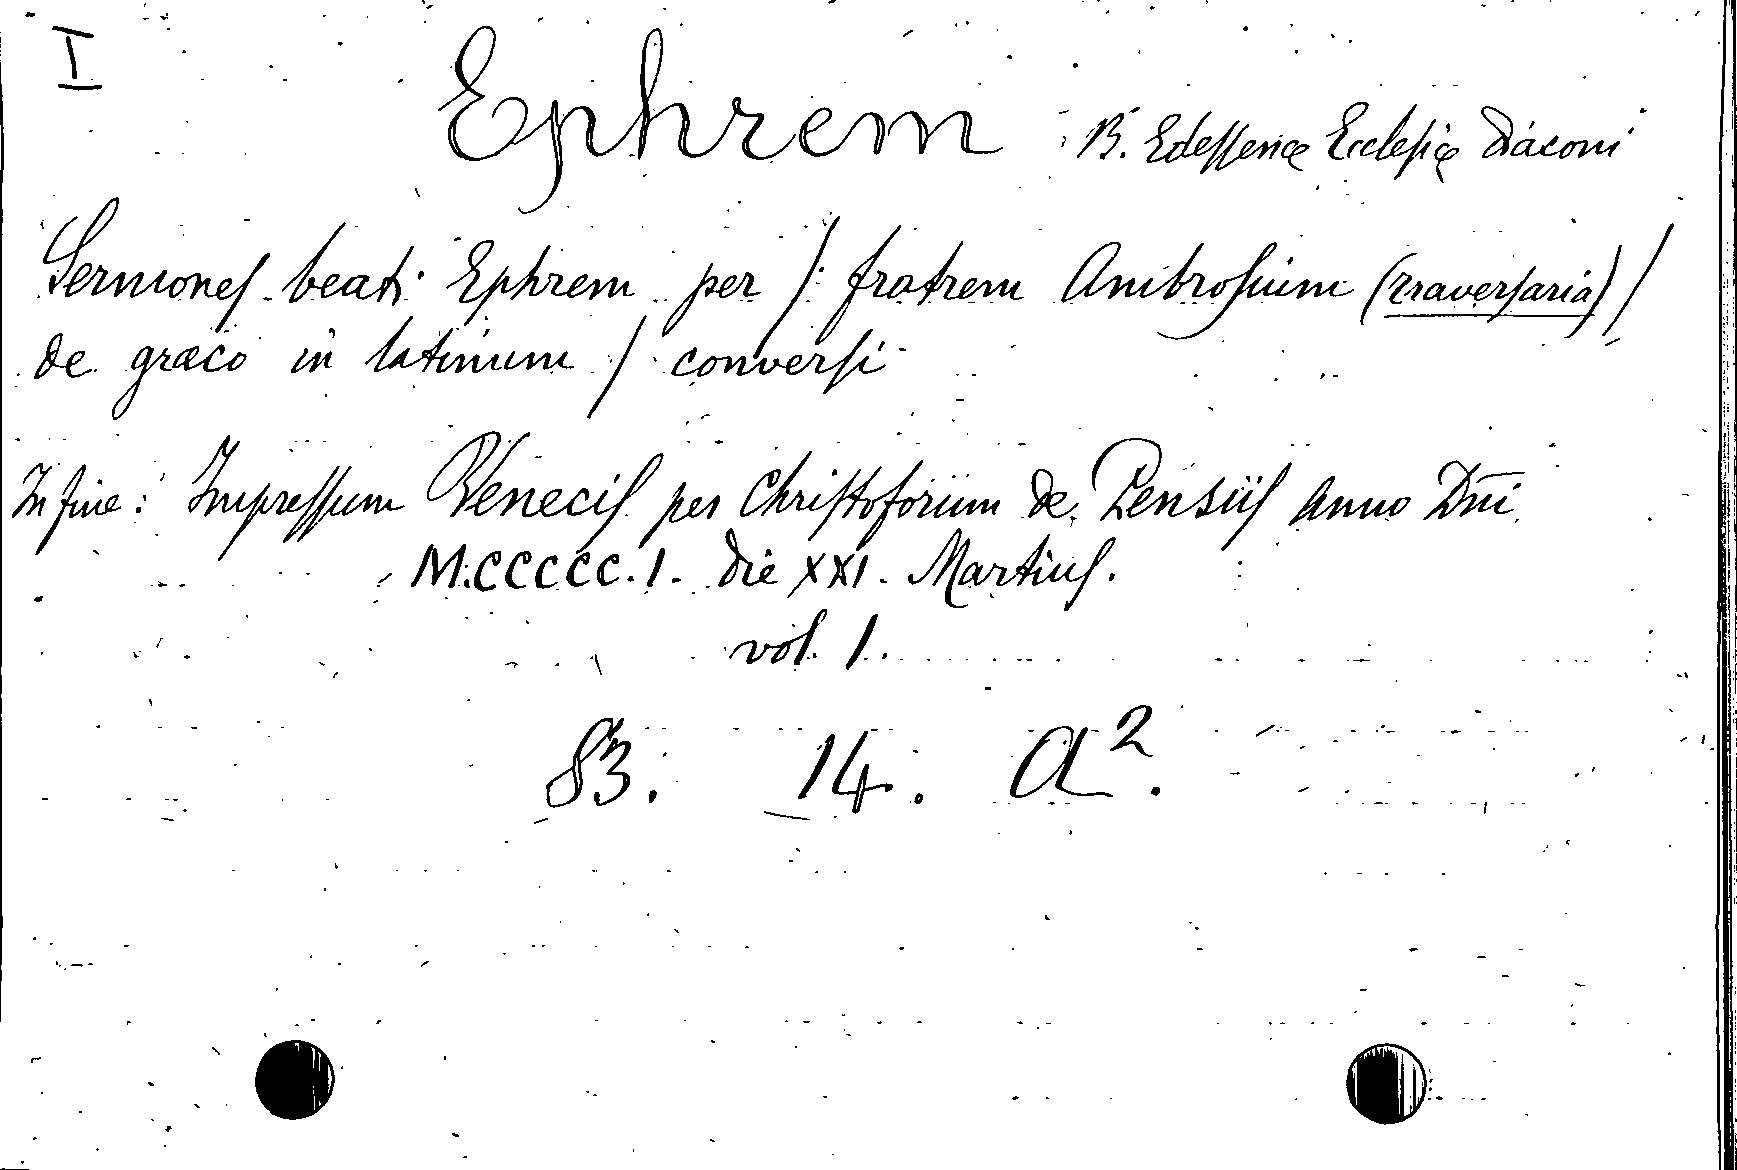 I
Ephrem B. Edessenæ Ecclesiæ Diaconi
Sermones beati Ephrem per / fratrem Ambrosium (Traversaria) /
de græco in latinum / conversi
In fine: Impressum Venecis per Christoforum de Pensiis Anno Dñi
M.CCCCC.I. die XXI. Martius.
vol. 1.
83. 14. a².